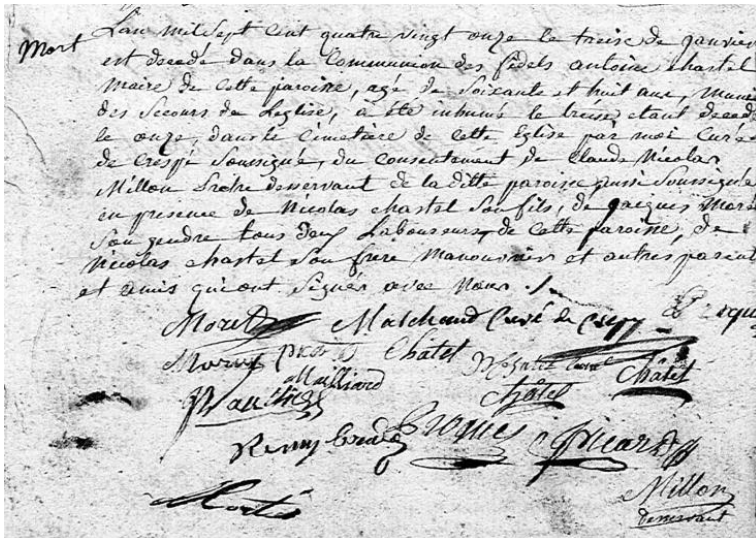 Mort
Lan mil sept cent quatre vingt onze le treise de janvier
est decedé dans la Communion des fidels antoine chastel
maire de cette paroisse, agé de soixante et huit ans, muni
des Secours de Leglise, a été inhumé le treise etant decedé
le onze, dans le Cimetiere de cette Eglise par moi Curé
de Crespé Soussigné, du consentement de Claude Nicolas
Millon Prêtre desservant de la ditte paroisse aussi Soussigné
en presence de Nicolas chastel Son fils, de jacques More
Son gendre tous deux Laboureurs de cette paroisse, de
Nicolas chastel Son frere Manouvrier et autres parent
et amis qui ont Signés avec Nous ./.
Morel Marchand Curé de Crepy
Châtel
Mailliard Châtel Châtel
Remy Picard
Millon
desservant